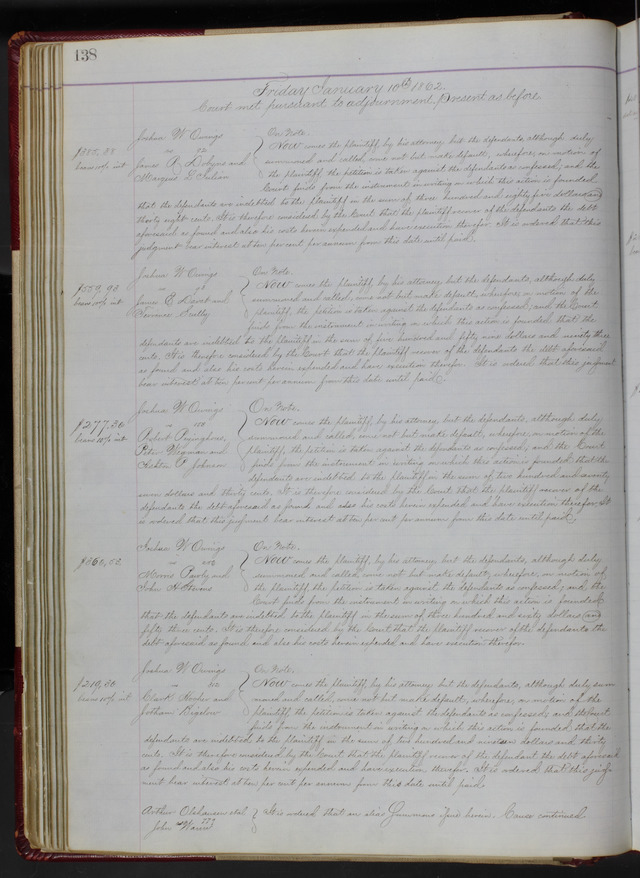 138
Friday January 10th 1862.
Court met pursuant to adjournment. Present as before.
Joshua W Owings
On Note.
$385.38
bears 10% int
James R. Dodyns and
Margins E. Julian
Now comes the plaintiff, by his attorney, but the defendants, although duly
summoned and called, come not but make default, wherefore, on motion of
the plaintiff, the petition is taken against the defendants as confessed, and the
Court finds from the instrument in writing on which this action is founded
that the defendants are indebted to the plaintiff in the sum of three hundred and eighty five dollars and
thirty eight cents. It is therefore considered by the Court that the plaintiff recover of the defendants the debt
aforesaid as found and also his costs herein expended and have execution therefor. It is ordered that this
judgment bear interest at ten per cent per annum from this date until paid.
Joshua W. Owings
On Note.
$559.93
bears 10% int
James E. and
Now comes the plaintiff, by his attorney but the defendants, although duly
summoned and called, come not but make default, wherefore, on motion of the
plaintiff, the petition is taken against the defendants as confessed, and the Court
finds from the instrument in writing on which this action is founded that the
defendants are indebted to the plaintiff in the sum of five hundred and fifty nine dollars and ninety three
cents. It is therefore considered by the Court that the plaintiff recover of the defendants the debt aforesaid
as found and also his costs herein expended and have execution therefor. It is ordered that this judgment
bear interest at ten per cent per annum from this date until paid.
Joshua W Owings
On Note.
$277.30
bears 10% int
Robert
Peter Wegman and
P. Johnson
Now comes the plaintiff, by his attorney, but the defendants, although duly
summoned and called, come not but make default, wherefore, on motion of the
plaintiff, the petition is taken against the defendants as confessed, and the Court
finds from the instrument in writing on which this action is founded that the
defendants are indebted to the plaintiff in the sum of two hundred and seventy
seven dollars and thirty cents. It is therefore considered by the Court that the plaintiff recover of the
defendants the debt aforesaid as found and also his costs herein expended and have execution therefor. It
is ordered that this judgment bear interest at ten per cent per annum from this date until paid.
Joshua W Owings
On Note.
$360.53
Morris and
John H Stevens
Now comes the plaintiff, by his attorney, but the defendants, although duly
summoned and called, come not but make default, wherefore, on motion of
the plaintiff, the petition is taken against the defendants as confessed, and the
Court finds from the instrument in writing on which this action is founded
that the defendants are indebted to the plaintiff in the sum of three hundred and sixty dollars and
fifty three cents. It is therefore considered by the Court that the plaintiff recover of the defendants the
debt aforesaid as found and also his costs herein expended and have execution therefor.
Joshua W Owings
On Note.
$219.30
bears 10% int
Clark and
Jotham Bigelow
Now comes the plaintiff, by his attorney but the defendants, although duly sum
moned and called, come not but make default, wherefore, on motion of the
plaintiff, the petition is taken against the defendants as confessed, and the Court
finds from the instrument in writing on which this action is founded that the
defendants are indebted to the plaintiff in the sum of two hundred and nineteen dollars and thirty
cents. It is therefore considered by the Court that the plaintiff recover of the defendant the debt aforesaid
as found and also his costs herein expended and have execution therefor. It is ordered that this judg
ment bear interest at ten per cent per annum from this date until paid.
Arthur Olshausen et al
It is ordered that an alias Summons issue herein. Cause continued.
John